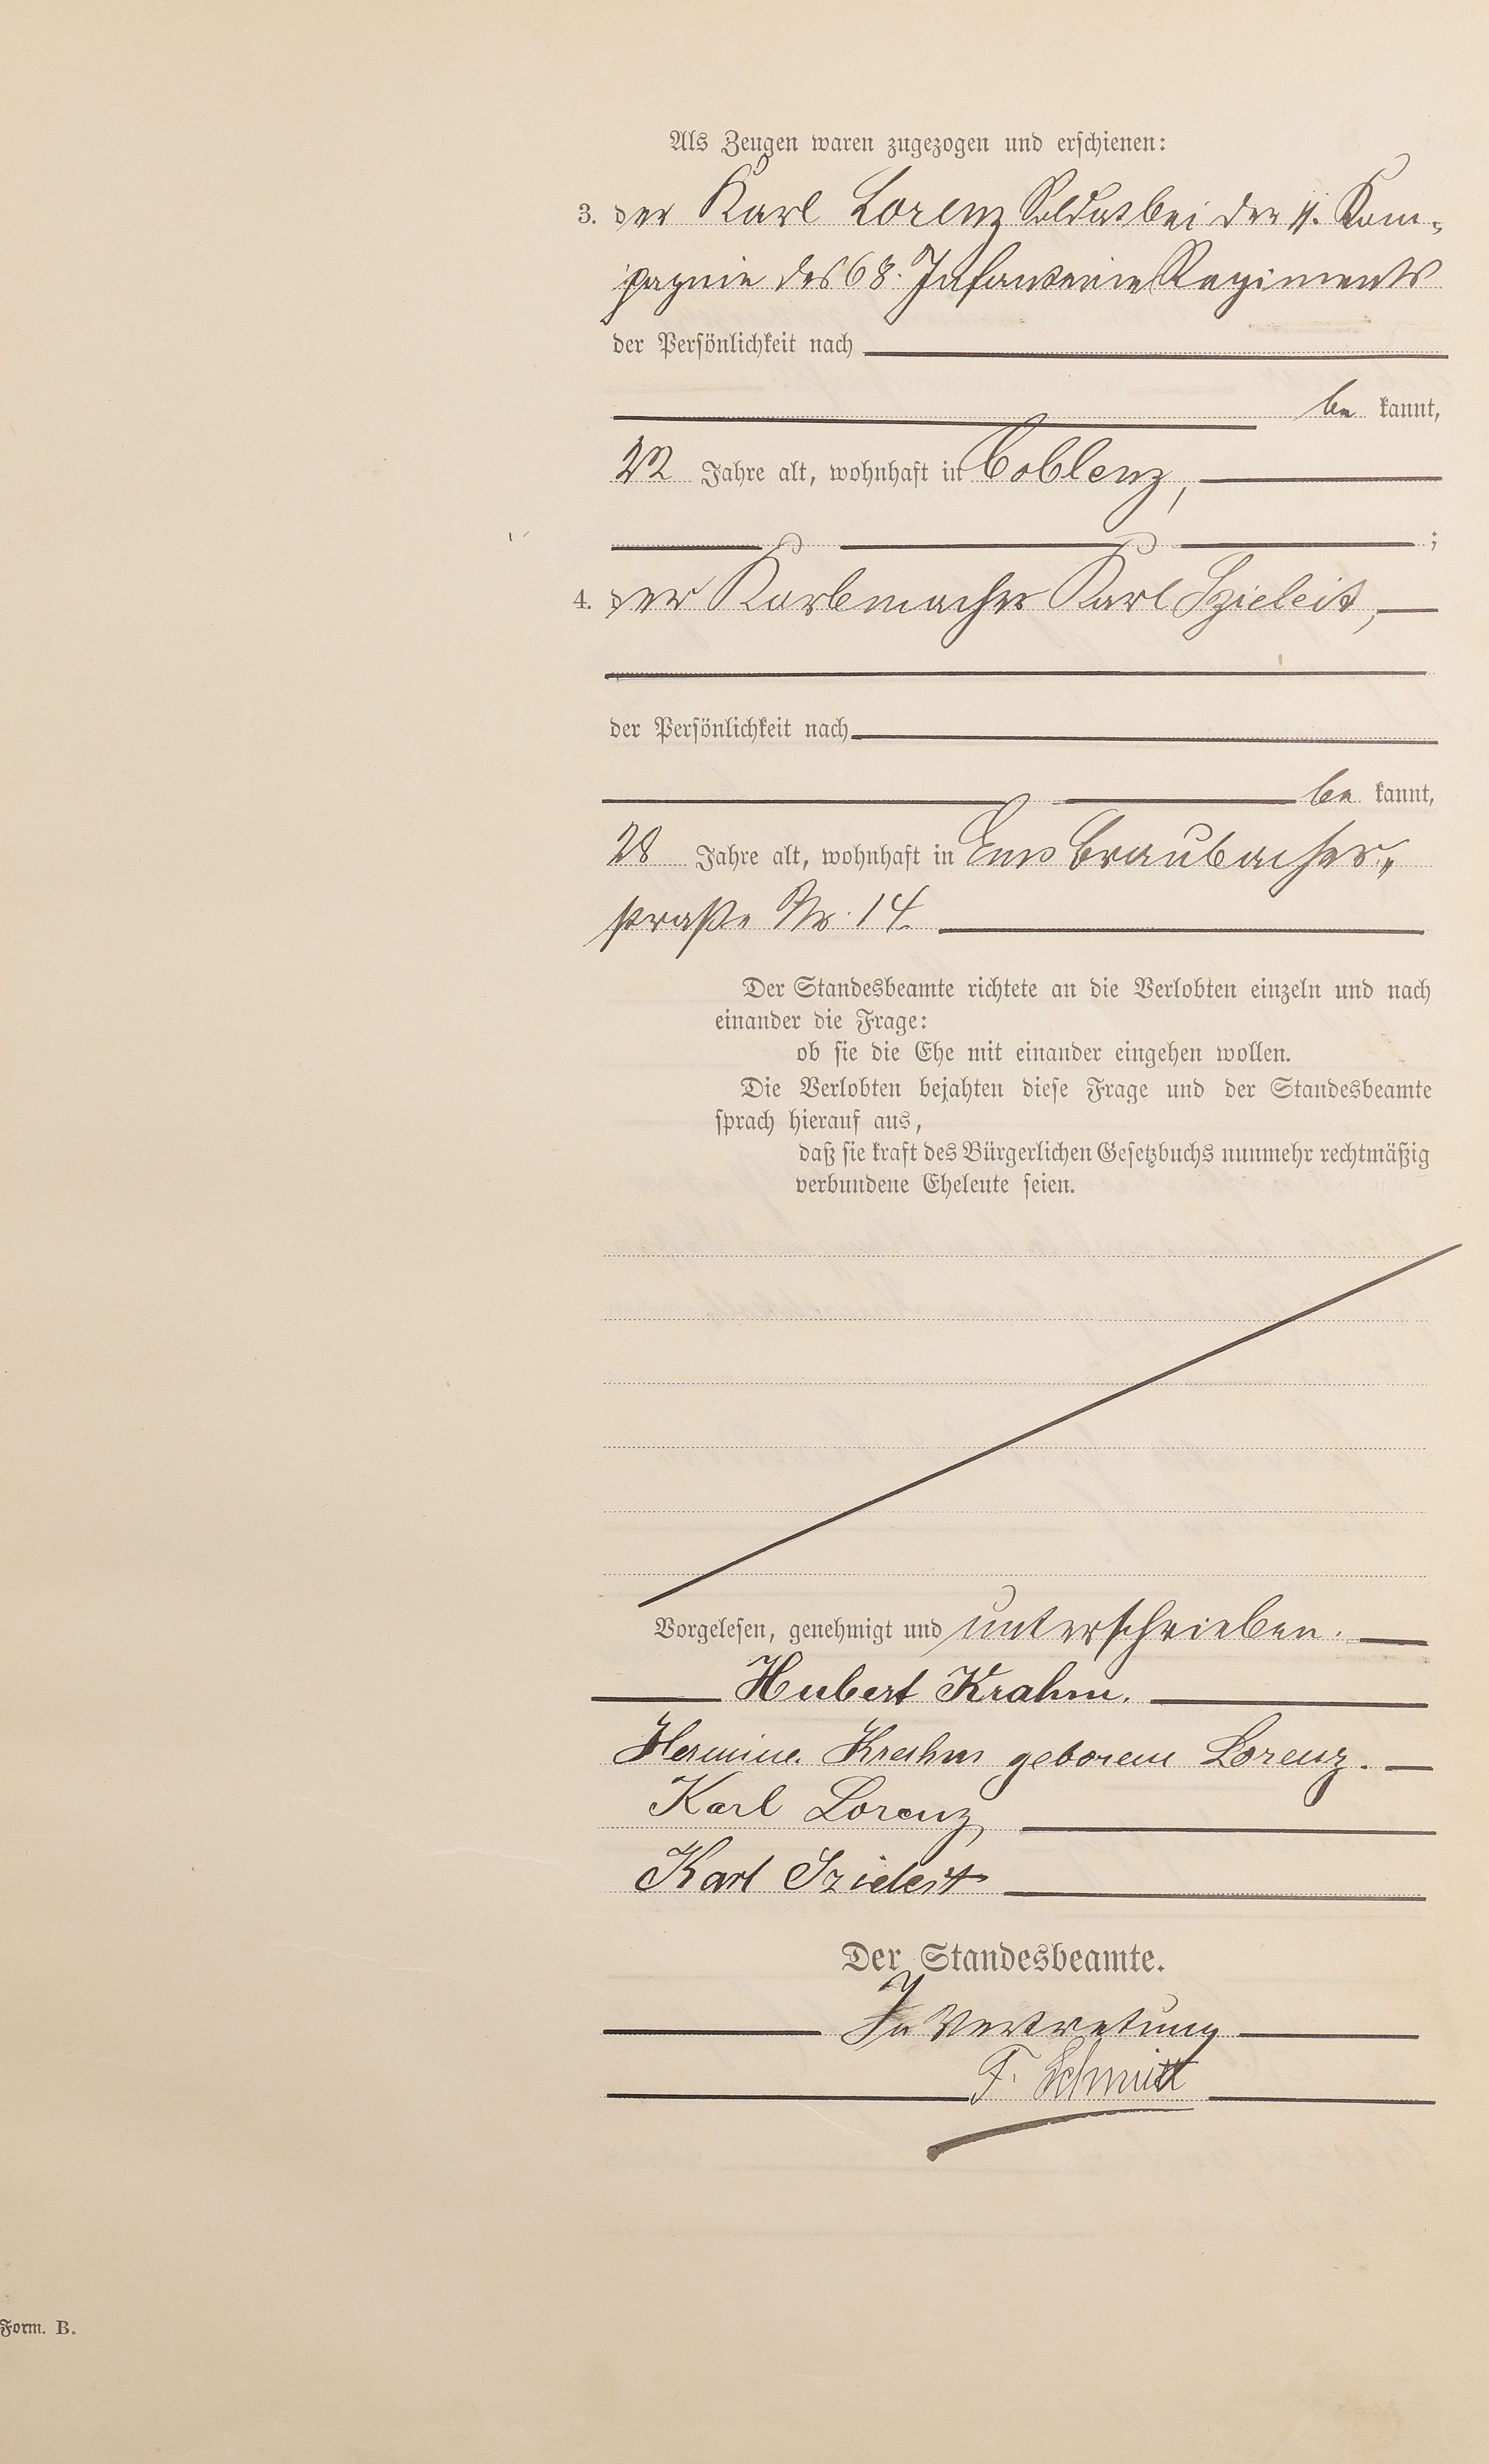 Als Zeugen waren zugezogen und erschienen:
3. der Karl Lorenz Soldat bei der 11. Kom-
pagnie des 68. Infanterie Regiments
der Persönlichkeit nach
be kannt,
22 Jahre alt, wohnhaft in Coblenz,
;
4. der Korbmacher Karl Szieleit,
der Persönlichkeit nach
be kannt,
28 Jahre alt, wohnhaft in Ems Braubacher-
straße Nr. 14.
Der Standesbeamte richtete an die Verlobten einzeln und nach
einander die Frage:
ob sie die Ehe mit einander eingehen wollen.
Die Verlobten bejahten diese Frage und der Standesbeamte
sprach hierauf aus,
daß sie kraft des Bürgerlichen Gesetzbuchs nunmehr rechtmäßig
verbundene Eheleute seien.
Vorgelesen, genehmigt und unterschrieben.
Hubert Krahm.
Hermine Krahm geborene Lorenz.
Karl Lorenz
Karl Szieleit
Der Standesbeamte.
In Vertretung
F. Schmitt
Form. B.